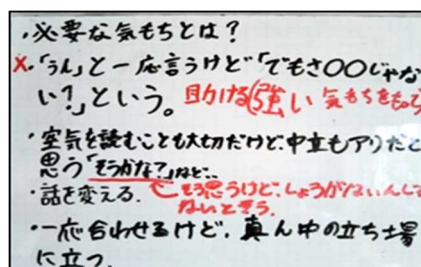 ・必要な気もちとは？
×・「うん」と一応言うけど「でもさ〇〇じゃな
い？」という。助ける(強い 気もちをもって
・空気を読むことも大切だけど、中立もアリだと
思う「そうかな？」など…
・話を変える。 そう思うけど、しょうがないんじゃ
ないと言う。
・一応合わせるけど、真ん中の立ち場
に立つ。